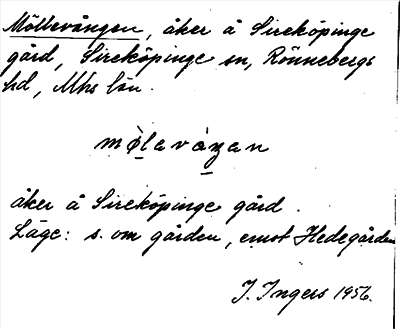 Möllevången, åker å Sireköpinge
gård, Sireköpinge sn, Rönnebergs
hd, Mhs län.
mø̀lavàŋan
åker å Sireköpinge gård.
Läge: s. om gården, emot Hedegården
I. Ingers 1956.